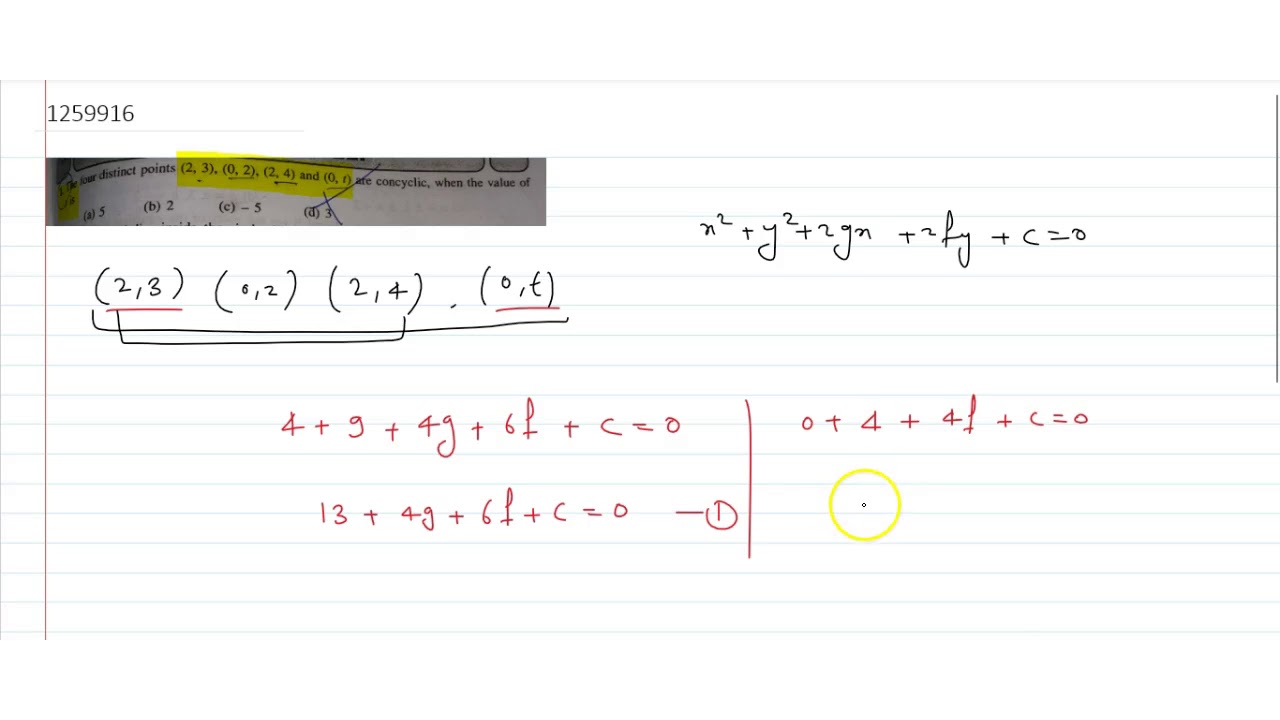 1259916
The four distinct points (2, 3), (0, 2), (2, 4) and (0, t) are concyclic, when the value of
(a) 5 (b) 2 (c) – 5 (d) 3
x² + y² + 2gx + 2fy + c = 0
(2,3) (0,2) (2,4) . (0,t)
4 + 9 + 4g + 6f + c = 0
0 + 4 + 4f + c = 0
13 + 4g + 6f + c = 0 — ①